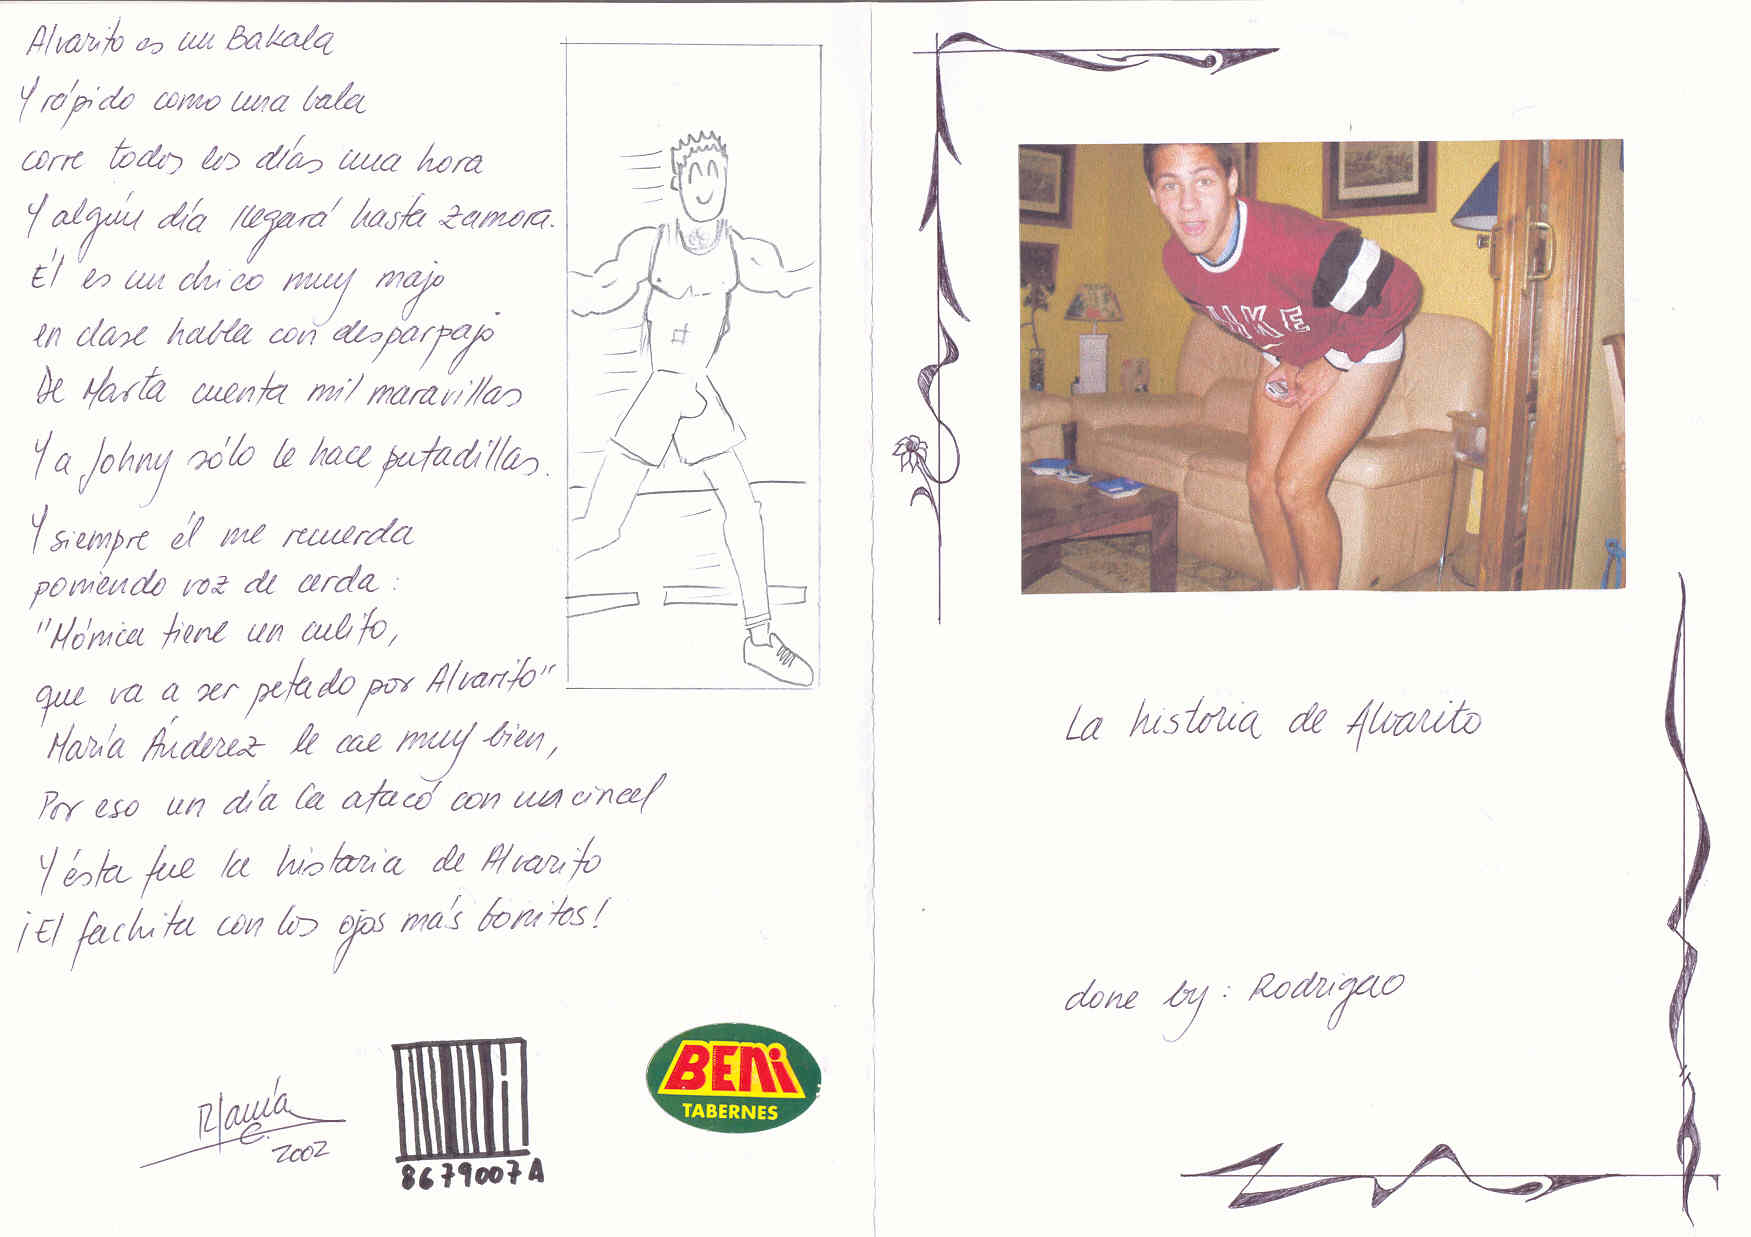 Alvarito es un Bakala
Y rápido como una bala
corre todos los días una hora
Y algún día llegará hasta Zamora.
Él es un chico muy majo
en clase habla con desparpajo
De Marta cuenta mil maravillas
Y a Johny sólo le hace putadillas.
Y siempre él me recuerda
poniendo voz de cerda:
"Mónica tiene un culito,
que va a ser petado por Alvarito"
María Ánderez le cae muy bien,
Por eso un día la atacó con un cincel
Y ésta fue la historia de Alvarito
¡El fachita con los ojos más bonitos!
2002
8679007A
BENi
TABERNES
La historia de Alvarito
done by: Rodrigao